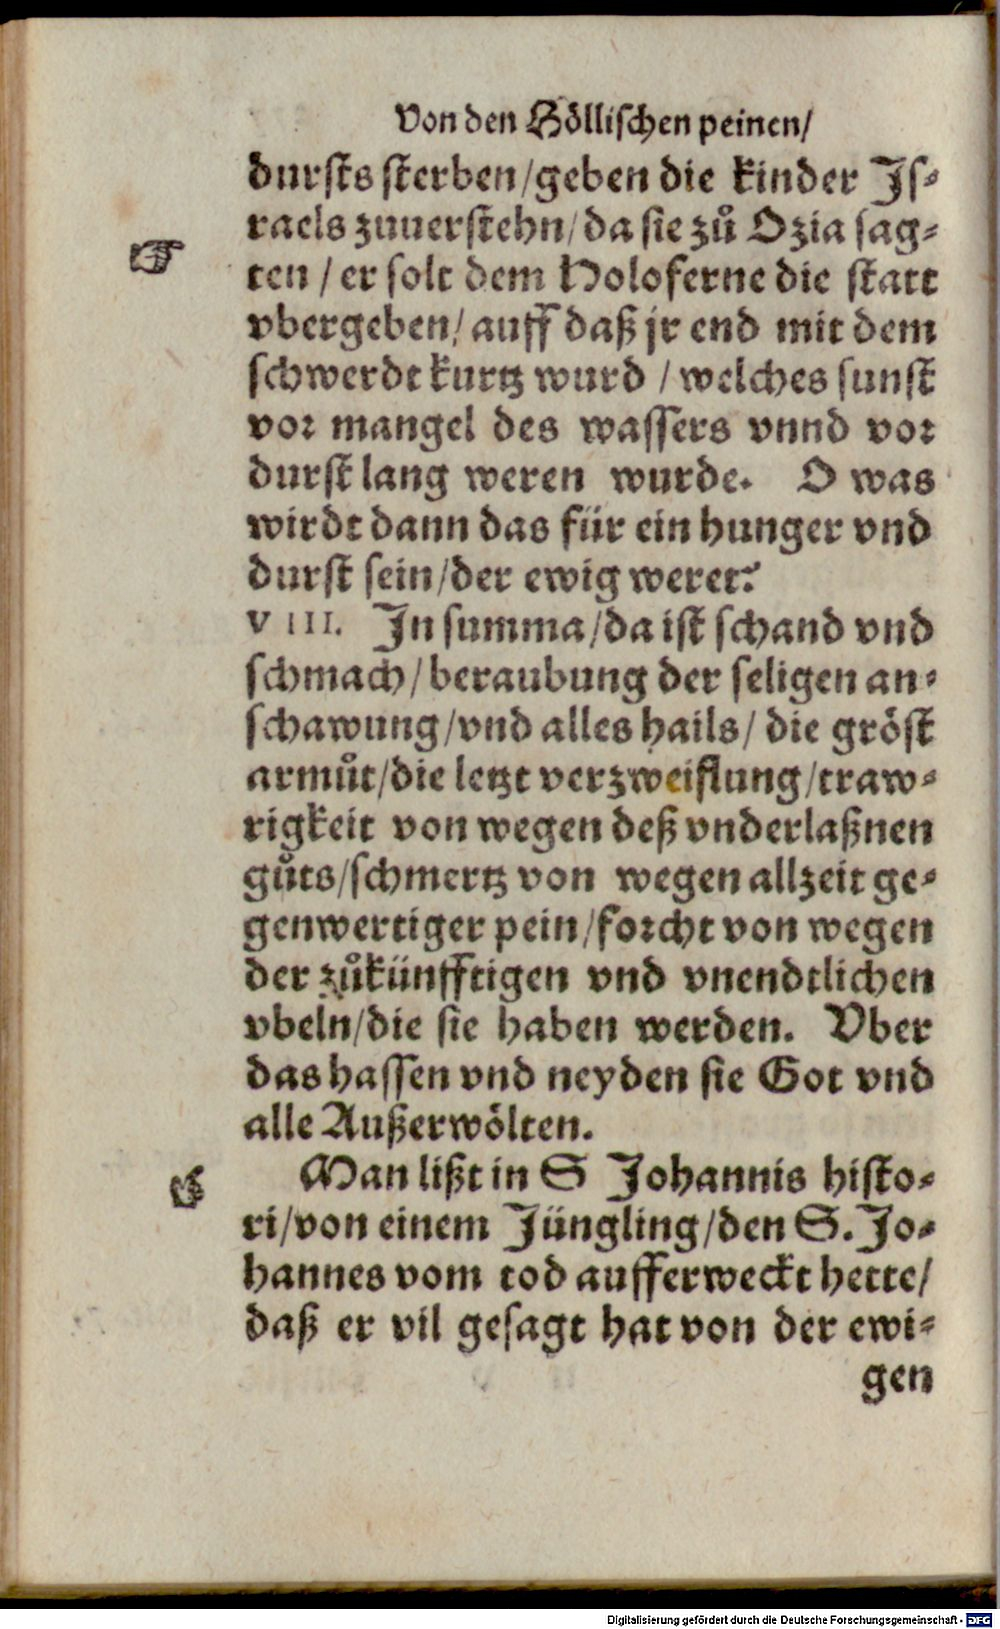 Von den Höllischen peinen/
dursts sterben/geben die kinder Js⸗
raels zuuerstehn/da sie zů Ozia sag⸗
ten / er solt dem Holoferne die statt
vbergeben/ auff daß jr end mit dem
schwerdt kurtz wurd / welches sunst
vor mangel des wassers vnnd vor
durst lang weren wurde. O was
wirdt dann das für ein hunger vnd
durst sein/der ewig weret?
VIII. Jn summa/da ist schand vnd
schmach/beraubung der seligen an⸗
schawung/vnd alles hails/ die gröst
armůt/die letzt verzweiflung/traw⸗
rigkeit von wegen deß vnderlaßnen
gůts/schmertz von wegen allzeit ge⸗
genwertiger pein/forcht von wegen
der zůkünfftigen vnd vnendtlichen
vbeln/die sie haben werden. Vber
das hassen vnd neyden sie Got vnd
alle Außerwölten.
Man lißt in S Johannis histo⸗
ri/von einem Jüngling/den S. Jo⸗
hannes vom tod aufferweckt hette/
daß er vil gesagt hat von der ewi⸗
gen
Digitalisierung gefördert durch die Deutsche Forschungsgemeinschaft - DFG